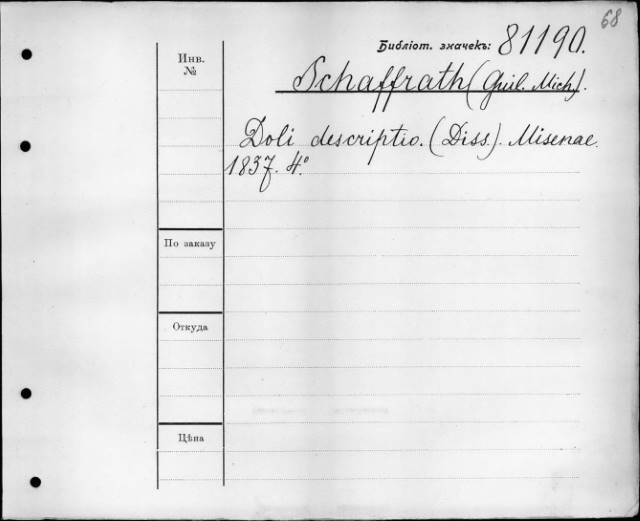 68
Библіот. значекъ: 81190.
Инв.
№
Schaffrath (Guil. Mich).
Doli descriptio. (Diss). Misenae.
1837. 4°
По заказу
Откуда
Цѣна